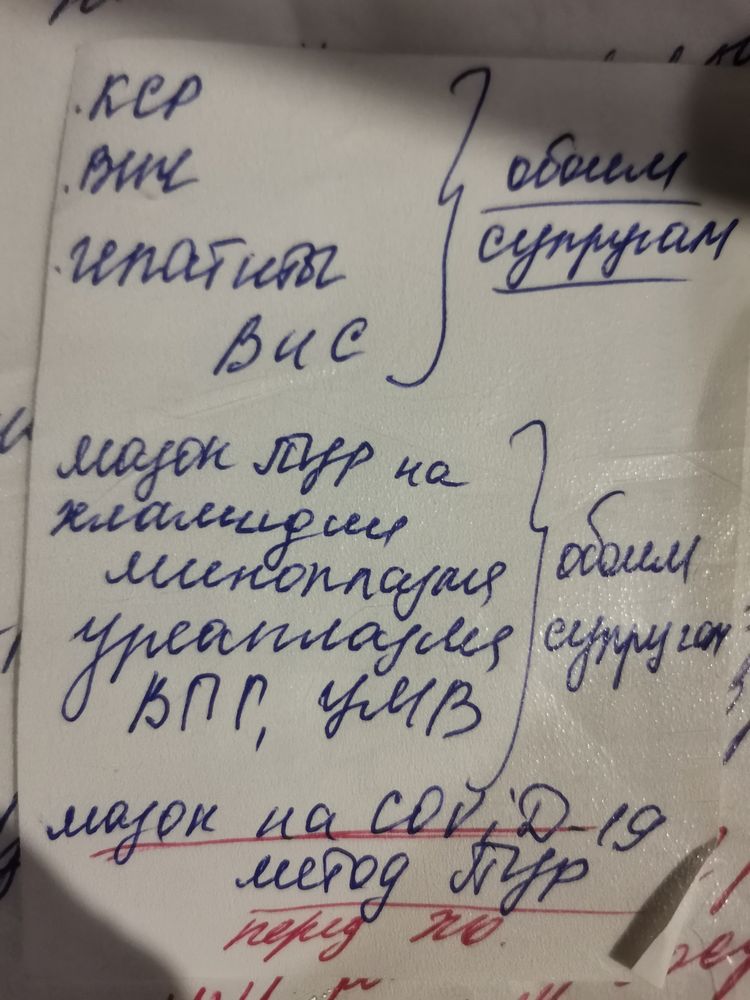 · КСР
· ВИЧ
· гепатиты
В и С
обоим
супругам
мазок ПЦР на
хламидии
микоплазма
уреаплазма
ВПГ, ЦМВ
обоим
супругам
мазок на COViD-19
метод ПЦР
перед